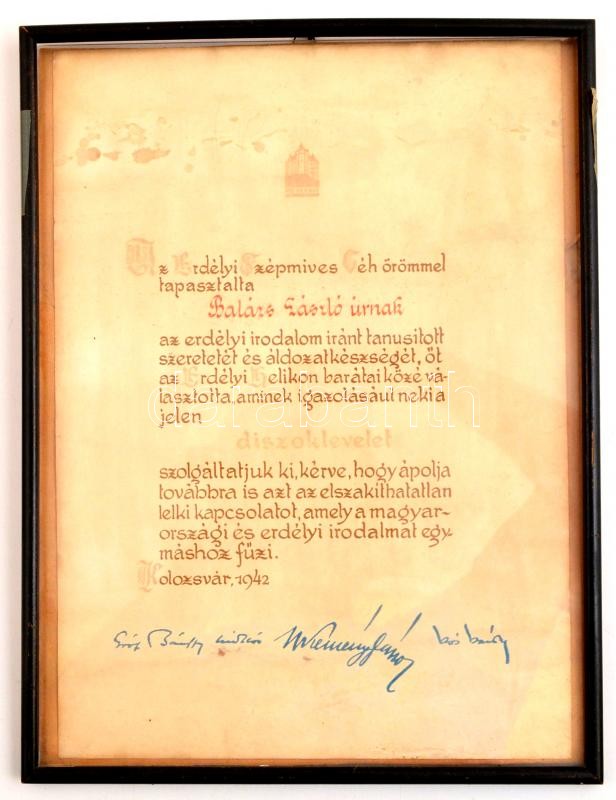 Az Erdélyi Szépmives Céh örömmel
tapasztalta
Balázs László úrnak
az erdélyi irodalom iránt tanusitott
szeretetét és áldozatkészségét, őt
az Erdélyi Helikon barátai közé vá-
lasztotta, aminek igazolásául neki a
jelen
diszoklevelet
szolgáltatjuk ki, kérve, hogy ápolja
továbbra is azt az elszakíthatatlan
lelki kapcsolatot, amely a magyar-
országi és erdélyi irodalmat egy-
máshoz fűzi.
Kolozsvár, 1942
Gróf Bánffy Miklós Kemény János Kós Károly
darabanth